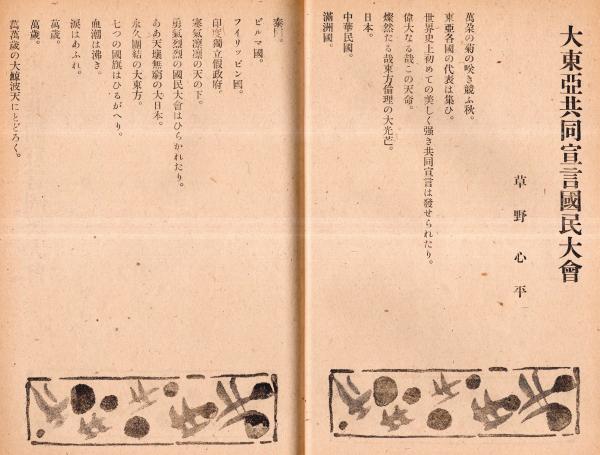 大東亞共同宣言國民大會
草野心平
萬朶の菊の咲き競ふ秋。
東亞各國の代表は集ひ。
世界史上初めての美しく强き共同宣言は發せられたり。
偉大なる哉この天命。
燦然たる哉東方倫理の大光芒。
日本。
中華民國。
滿洲國。
泰國。
ビルマ國。
フイリッピン國。
印度獨立假政府。
寒氣凛凛の天の下。
勇氣烈烈の國民大會はひらかれたり。
ああ天壤無窮の大日本。
永久團結の大東方。
七つの國旗はひるがへり。
血潮は沸き。
淚はあふれ。
萬歲。
萬歲。
萬萬歲の大鯨波天にとどろく。